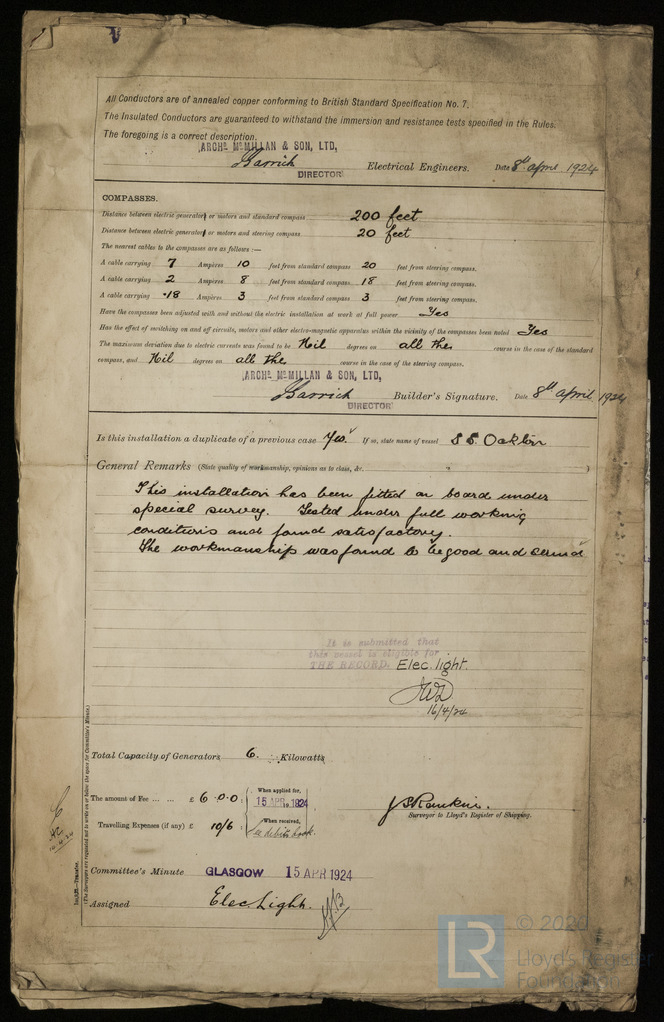 All Conductors are of annealed copper conforming to British Standard Specification No. 7.
The Insulated Conductors are guaranteed to withstand the immersion and resistance tests specified in the Rules.
The foregoing is a correct description.
ARCHD. McMILLAN & SON, LTD,
Electrical Engineers. Date 8th April 1924
DIRECTOR
COMPASSES.
Distance between electric generator or motors and standard compass 200 feet
Distance between electric generator or motors and steering compass 20 feet
The nearest cables to the compasses are as follows :—
A cable carrying 7 Ampères 10 feet from standard compass 20 feet from steering compass.
A cable carrying 2 Ampères 8 feet from standard compass 18 feet from steering compass.
A cable carrying .18 Ampères 3 feet from standard compass 3 feet from steering compass.
Have the compasses been adjusted with and without the electric installation at work at full power Yes
Has the effect of switching on and off circuits, motors and other electro-magnetic apparatus within the vicinity of the compasses been noted Yes
The maximum deviation due to electric currents was found to be Nil degrees on all the course in the case of the standard
compass, and Nil degrees on all the course in the case of the steering compass.
ARCHD. McMILLAN & SON, LTD,
Builder's Signature. Date 8th April 1924
DIRECTOR
Is this installation a duplicate of a previous case Yes If so, state name of vessel S S. Oakton
General Remarks (State quality of workmanship, opinions as to class, &c.)
This installation has been fitted on board under
special survey. Tested under full working
conditions and found satisfactory.
The workmanship was found to be good and sound
It is submitted that
this vessel is eligible for
THE RECORD. Elec. light.
16/4/24
Total Capacity of Generators 6. Kilowatts
The amount of Fee ... ... £ 6.0.0 When applied for, 15 APR 1924
Travelling Expenses (if any) £ 10/6 When received,
J S Rankin.
Surveyor to Lloyd's Register of Shipping.
Committee's Minute GLASGOW 15 APR 1924
Assigned Elec. Light.
(The Surveyors are requested not to write on or below the space for Committee's Minute.)
LR
Lloyd's Register
Foundation